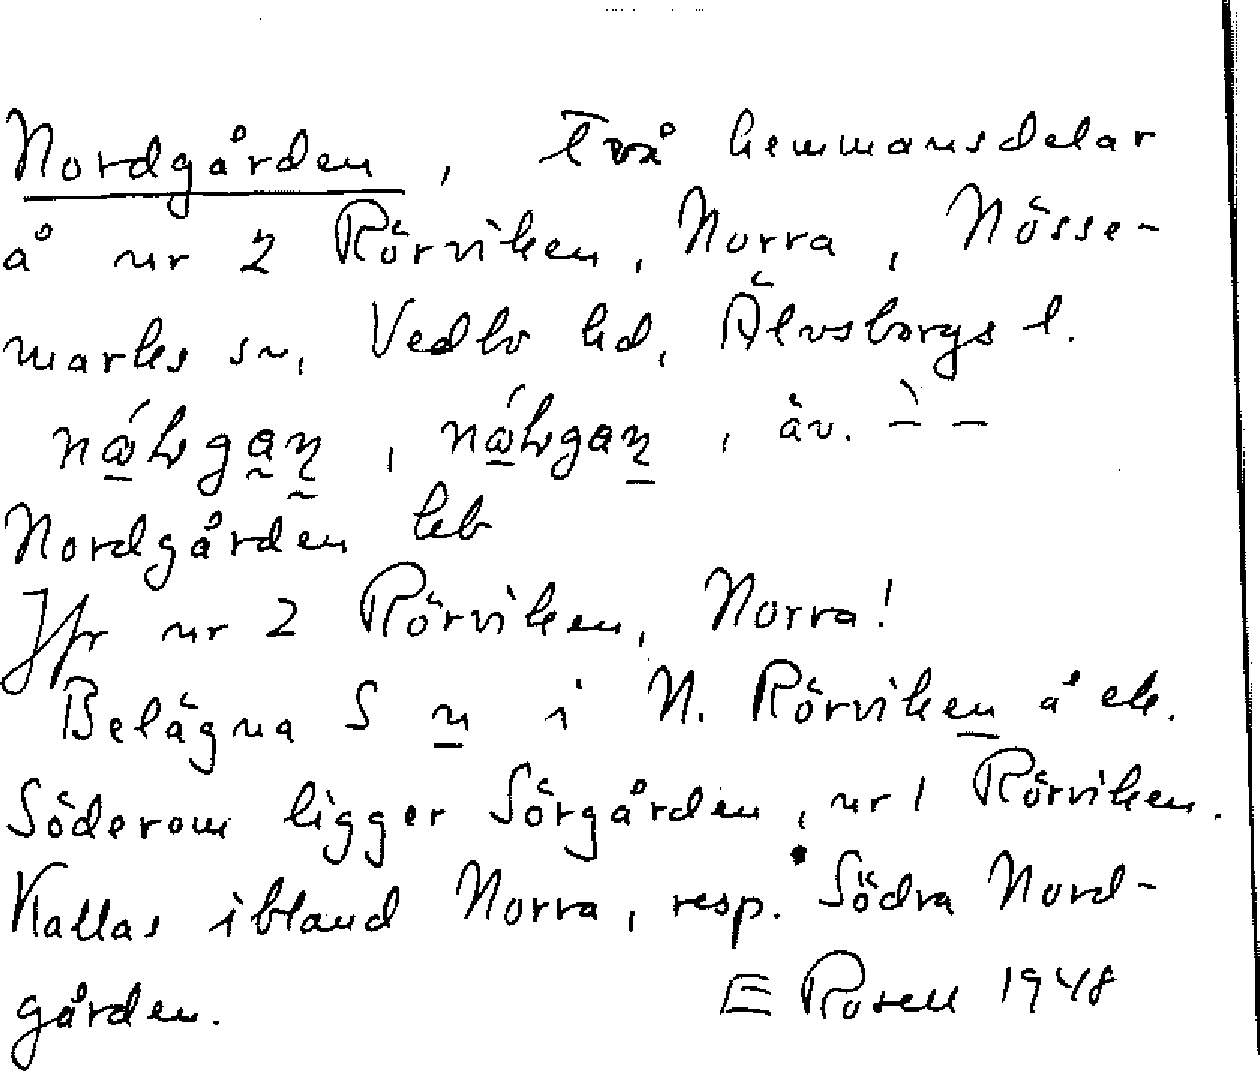 Nordgården, Två hemmansdelar
å nr 2 Rörviken, Norra, Nösse-
marks sn, Vedbo hd, Älvsborgs l.
, äv. - -
Nordgården
Jfr nr 2 Rörviken, Norra!
Belägna S n i N. Rörviken å ek.
Söderom ligger Sörgården, nr 1 Rörviken.
Kallas ibland Norra, resp. Södra Nord-
gården. E Rosell 1948